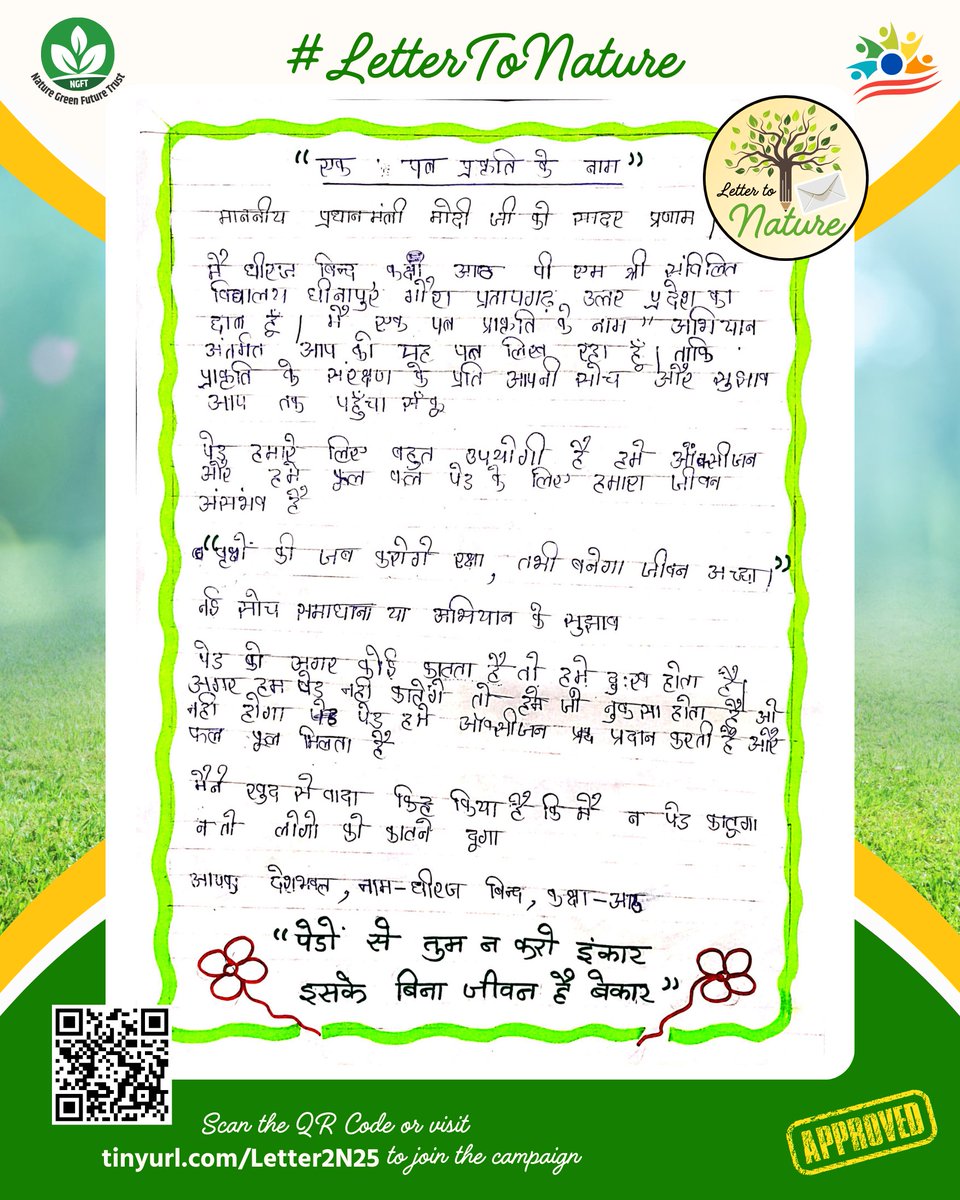 #LetterToNature
NGFT
Nature Green Future Trust
Letter to
Nature
“एक पत्र प्रकृति के नाम”
माननीय प्रधानमंत्री मोदी जी को सादर प्रणाम |
मै धीरज बिन्द कक्षा आठ पी एम श्री संविलित
विद्यालय धीनापुर गौरा प्रतापगढ़ उत्तर प्रदेश का
छात्र हूँ | मै एक पत्र प्राकृति के नाम” अभियान
अंतर्गत आप को यह पत्र लिख रहा हूँ | ताकि
प्राकृति के संरंक्षण के प्रति आपनी सोच और सुझाव
आप तक पहुँचा सकूँ
पेड़ हमारे लिए बहुत उपयोगी है हमे ऑक्सीजन
और हमे फूल फल पेड के लिए हमारा जीवन
असंभव है
“वृक्षों की जब करोगे रक्षा, तभी बनेगा जीवन अच्छा|”
नई सोच समाधाना या अभियान के सुझाव
पेड को अगर कोई काटता है तो हमे दुःख होता है|
अगर हम पेड़ नही काटेंगे तो हमे जो नुकसा होता है ओ
नही होगा पेड हमे ऑक्सीजन प्रदान करती है और
फल फूल मिलता है
मैने खुद से वादा किया है कि मै न पेड काटूगा
न तो लोगो को काटने दूगा
आपक देशभक्त, नाम-धीरज बिन्द, कक्षा-आठ
“पेडों से तुम न करो इंकार
इसके बिना जीवन है बेकार”
Scan the QR Code or visit
tinyurl.com/Letter2N25 to join the campaign
APPROVED